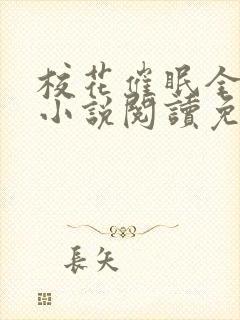 校花催眠全
小說閱讀免
長矢